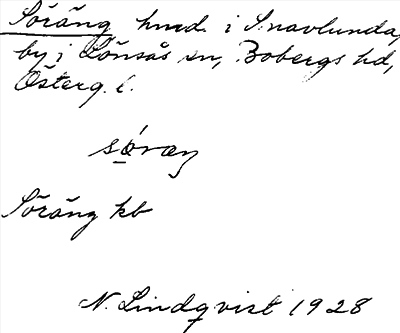 Söräng hmd. i Snavlunda,
by i Lönsås sn, Bobergs hd,
Österg. l.
Söräng kb
N. Lindqvist 1928